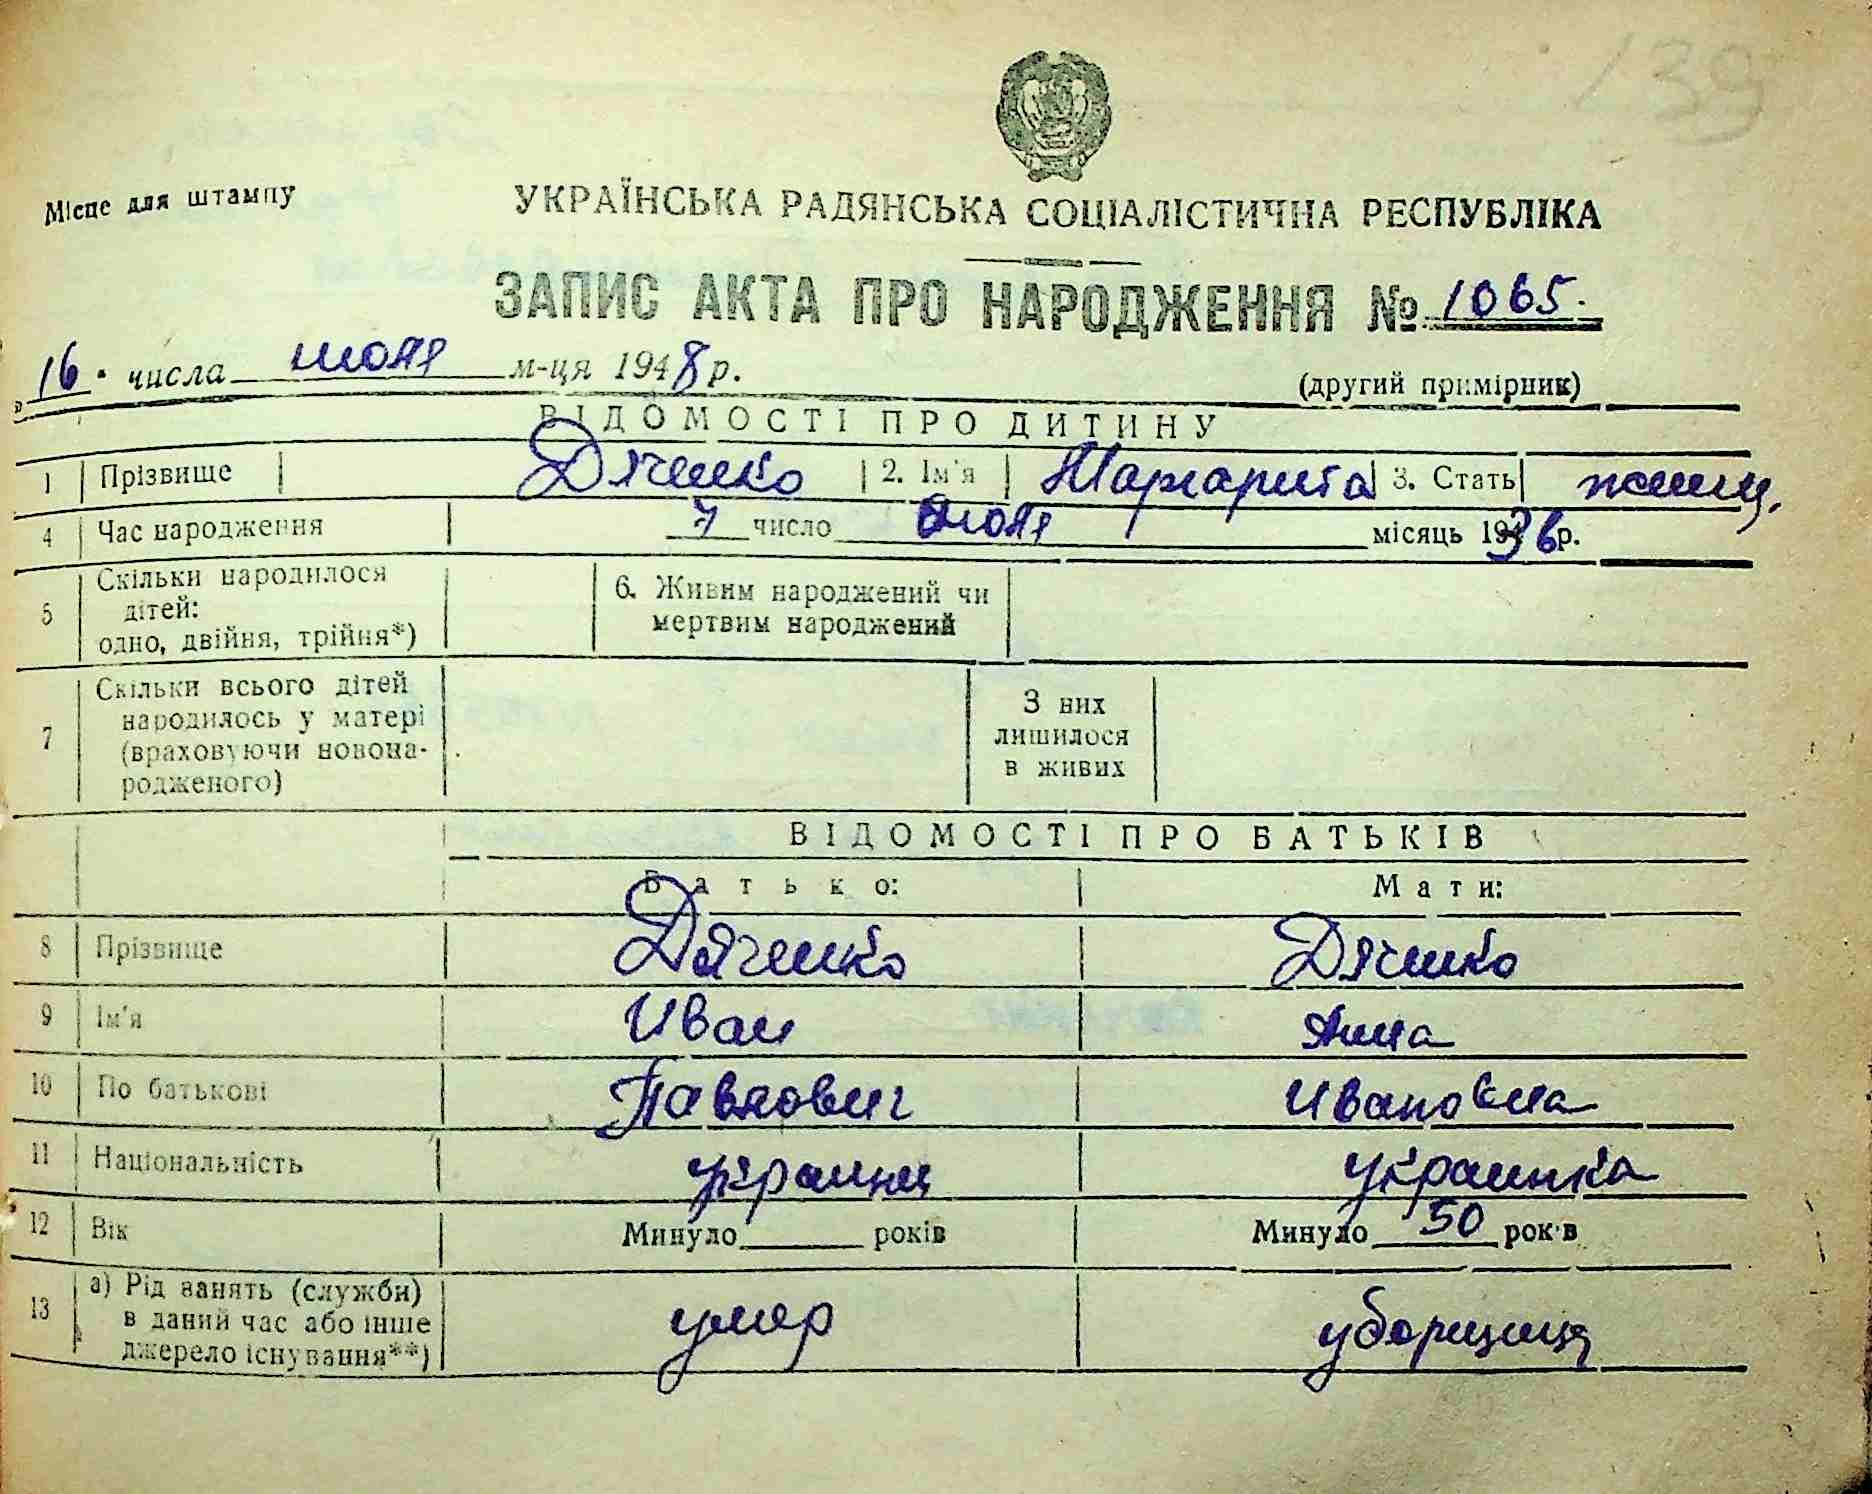 139
Місце для штампу
УКРАЇНСЬКА РАДЯНСЬКА СОЦІАЛІСТИЧНА РЕСПУБЛІКА
ЗАПИС АКТА ПРО НАРОДЖЕННЯ № 1065.
16. числа июля м-ця 1948 р.
(другий примірник)
ВІДОМОСТІ ПРО ДИТИНУ
1 Прізвище Дяченко 2. Ім'я Маргарита 3. Стать женщ.
4 Час народження 7 число июля місяць 1936 р.
5 Скільки народилося дітей: одно, двійня, трійня*) 6. Живим народжений чи мертвим народжений
7 Скільки всього дітей народилось у матері (враховуючи новонародженого) З них лишилося в живих
ВІДОМОСТІ ПРО БАТЬКІВ
Батько: Мати:
8 Прізвище Дяченко Дяченко
9 Ім'я Иван Анна
10 По батькові Павлович Ивановна
11 Національність украинец украинка
12 Вік Минуло років Минуло 50 років
13 а) Рід занять (служби) в даний час або інше джерело існування**) умер уборщица